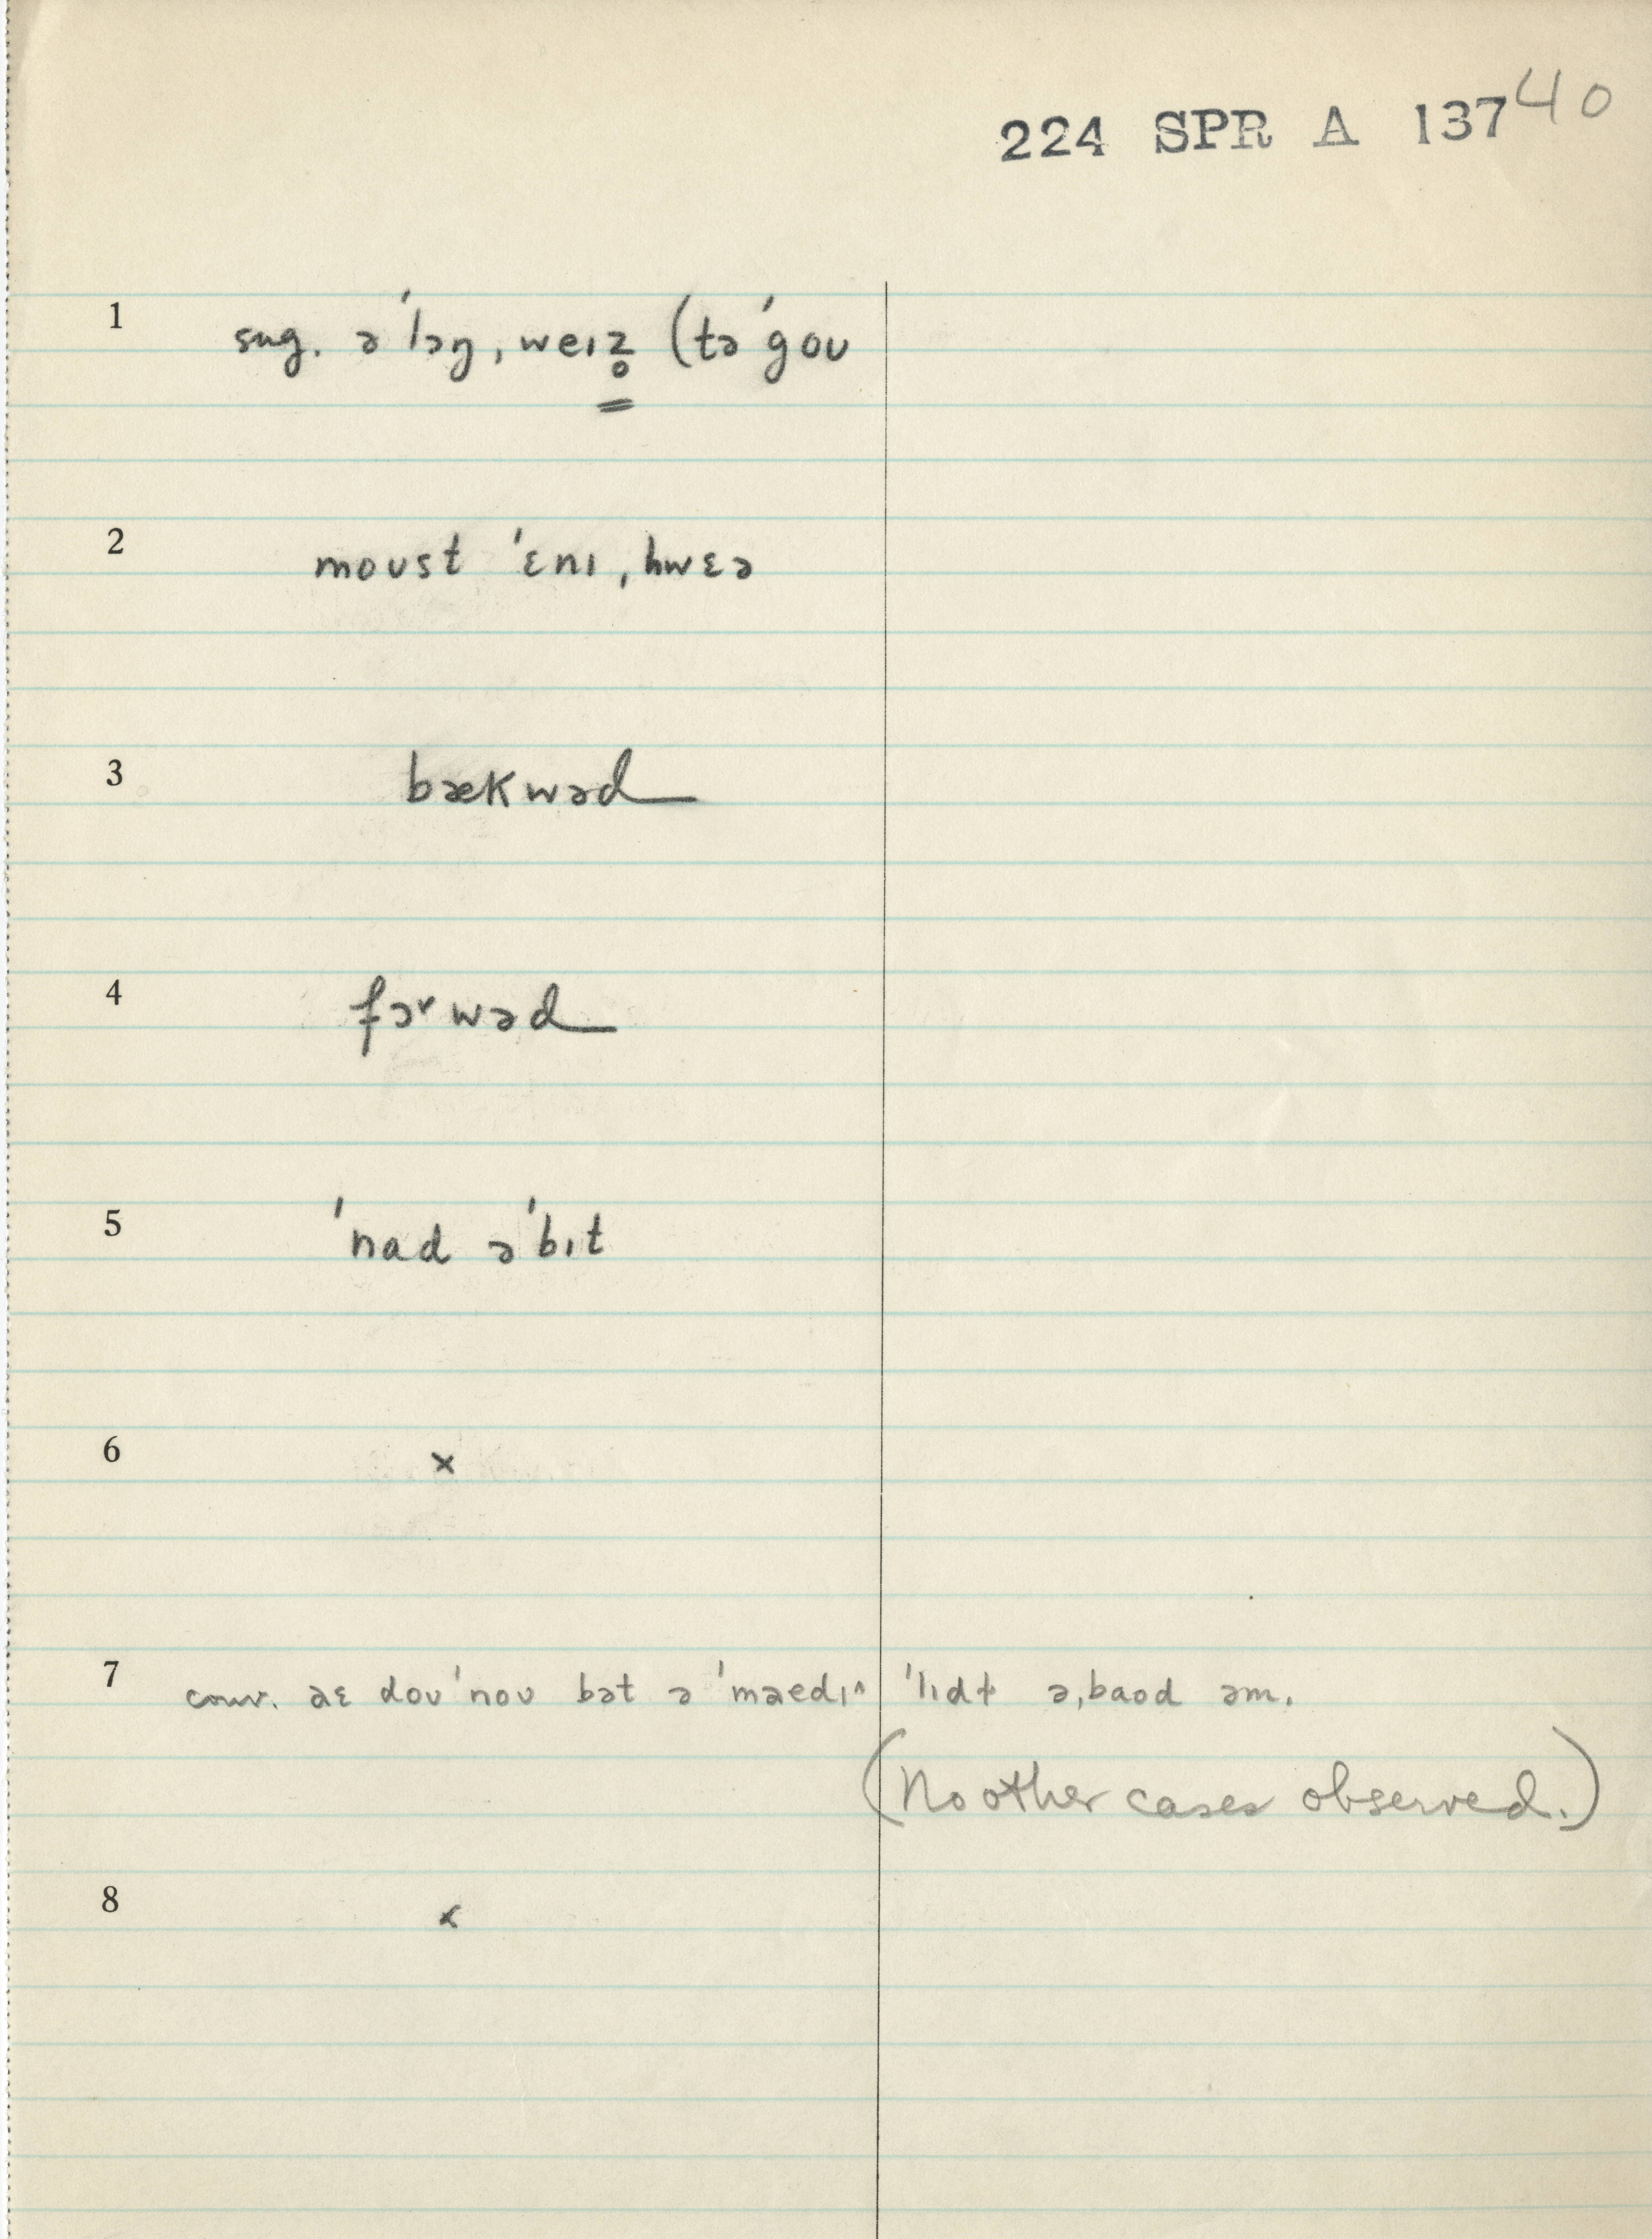 224 SPR A 137 40
1 sug. ə'lɔŋ, weɪz̥ (tə'gou
2 moust 'ɛnɪ, hwɛə
3 bækwəd
4 fɔrwəd
5 'nad ə'bɪt
6 x
7 conv. aɛ dou'nou bət ə 'mædɪ^ 'lɪdt ə,baod əm.
(No other cases observed.)
8 x